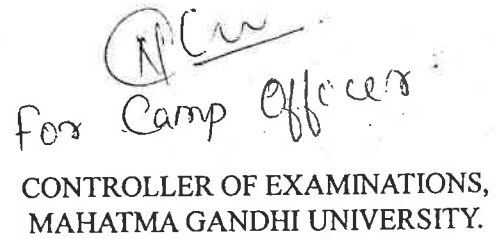 For Camp Officer:
CONTROLLER OF EXAMINATIONS,
MAHATMA GANDHI UNIVERSITY.